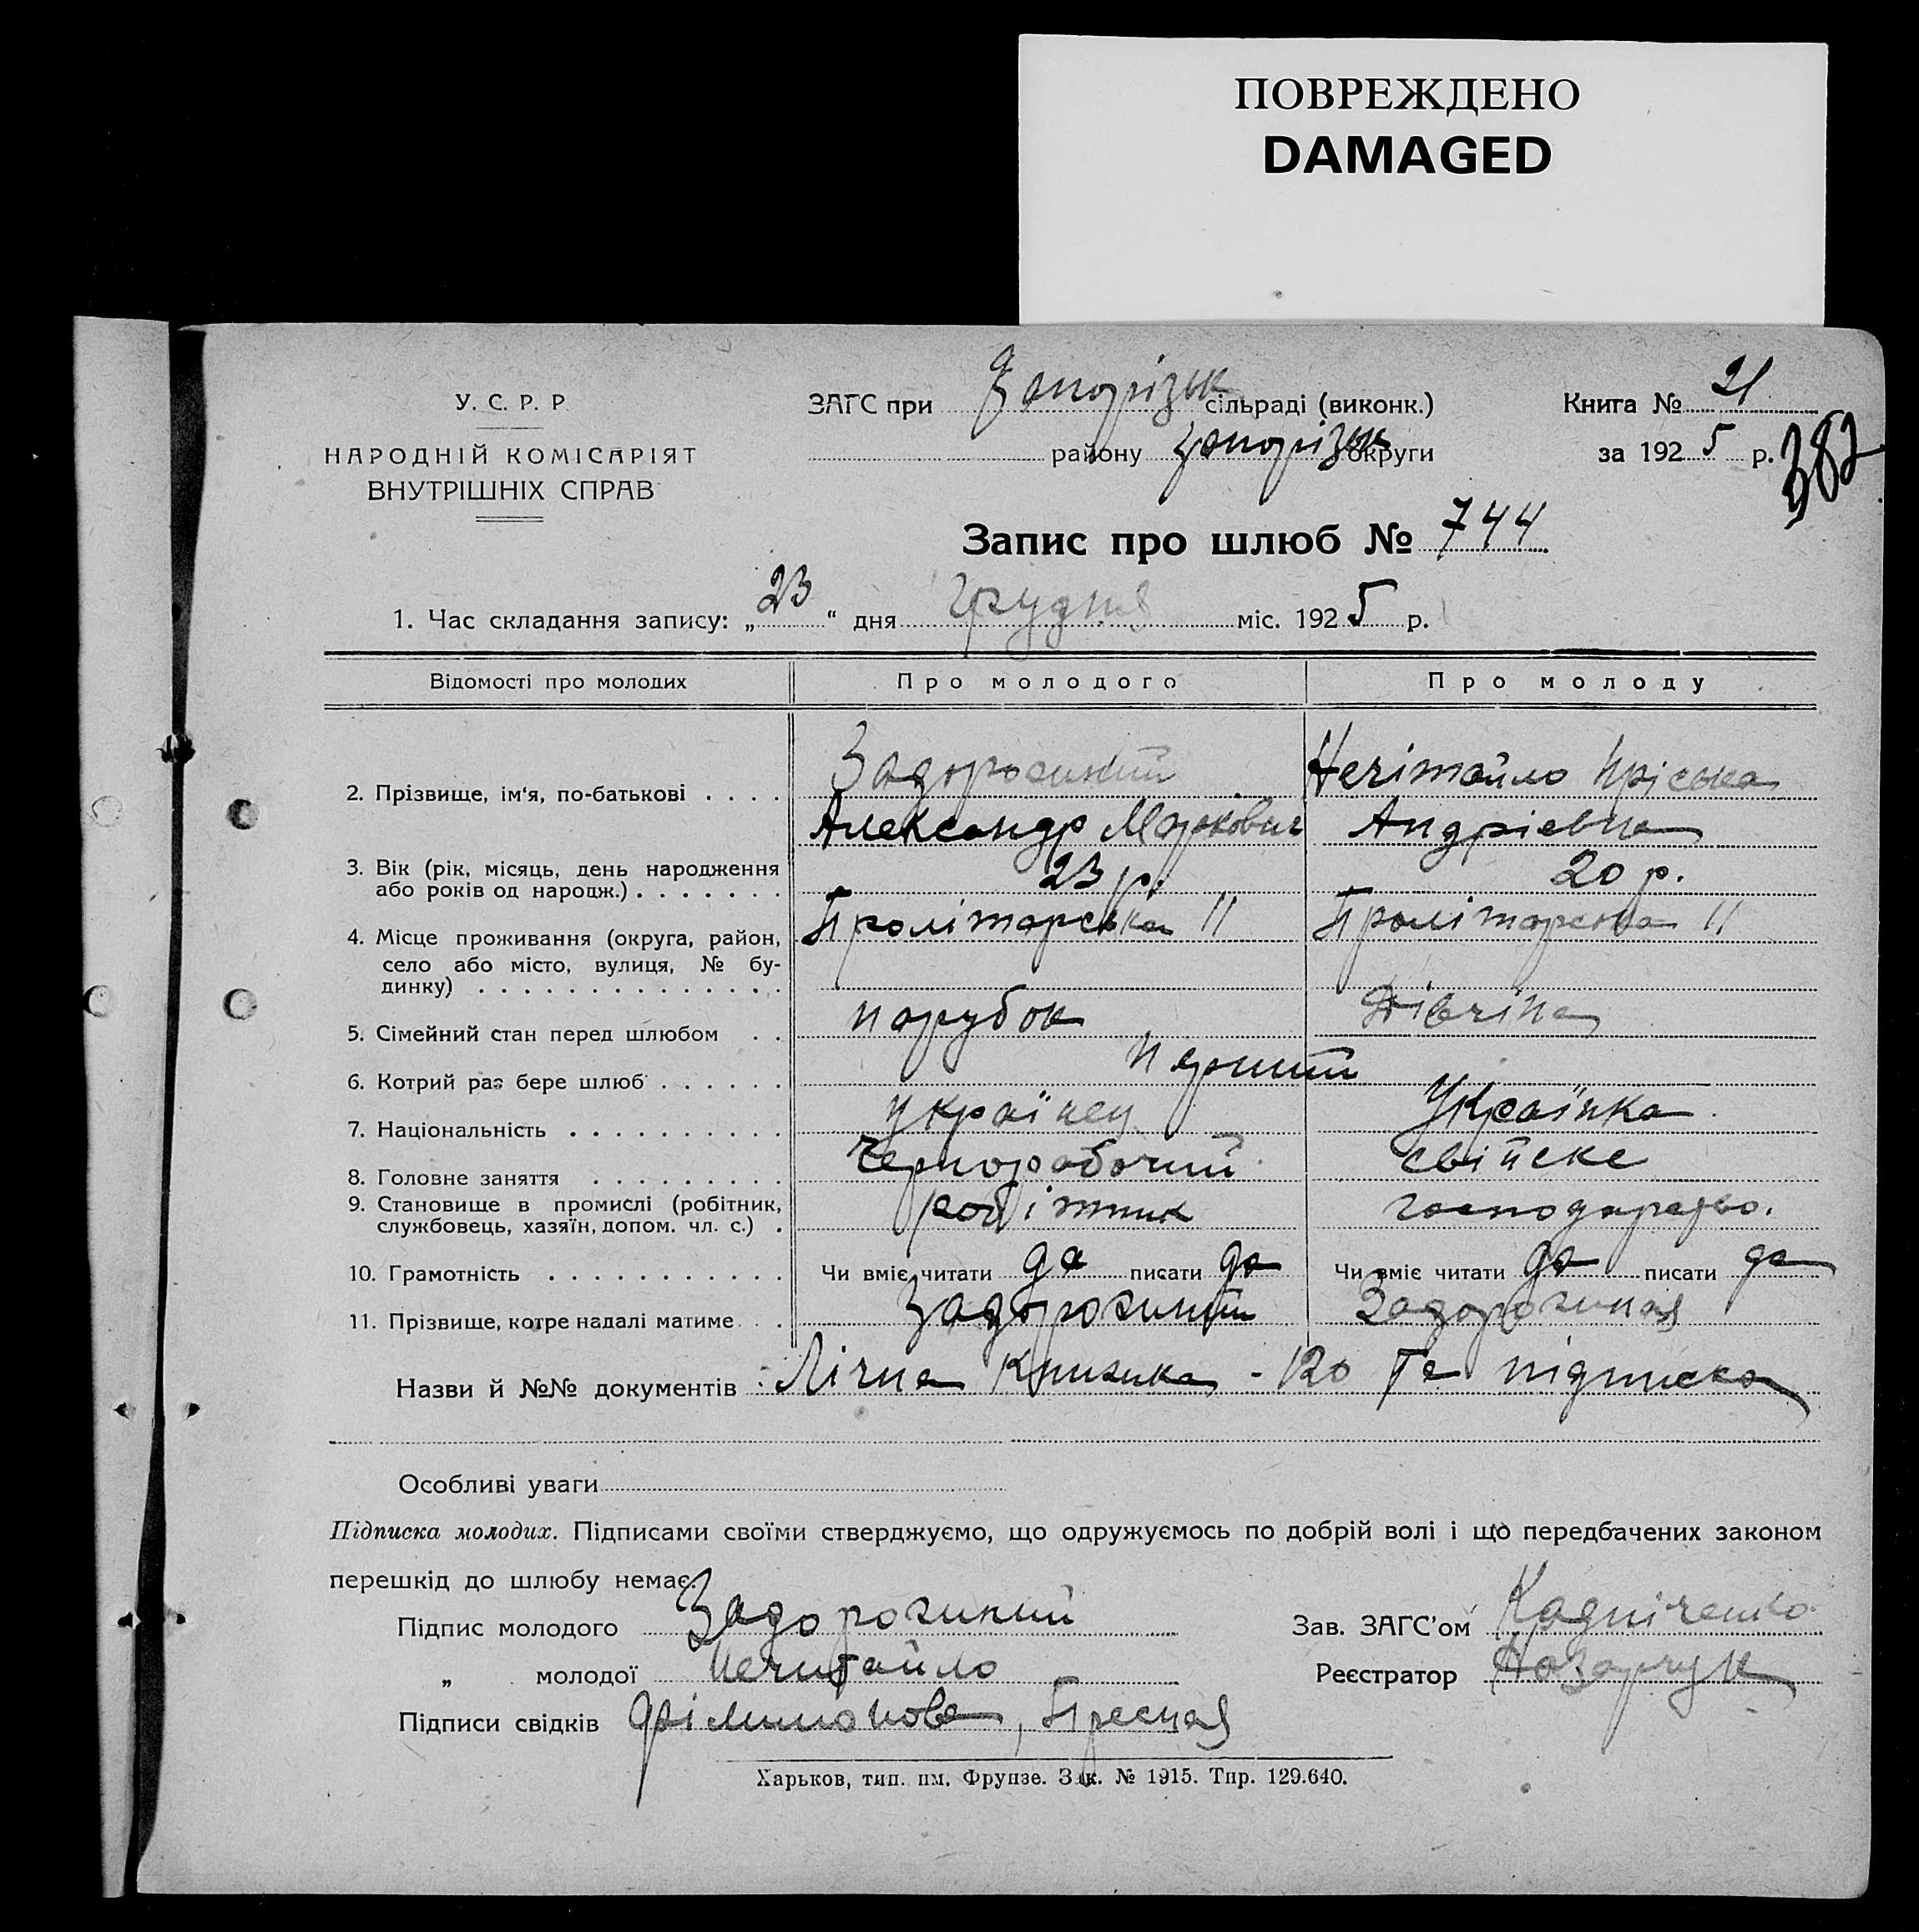 ПОВРЕЖДЕНО
DAMAGED
У. С. Р. Р.
НАРОДНІЙ КОМІСАРІЯТ
ВНУТРІШНІХ СПРАВ
ЗАГС при Запорізьк сільраді (виконк.)
району Запорізьк округи
Книга № 21
за 1925 р.
382
Запис про шлюб № 744
1. Час складання запису: „23“ дня Грудня міс. 1925 р.
Відомості про молодих Про молодого Про молоду
2. Прізвище, ім'я, по-батькові . . . . Задорожний Нечітайло Пріська
Александр Маркович Андріевна
3. Вік (рік, місяць, день народження
або років од народж.) . . . . . . . 23 р. 20 р.
4. Місце проживання (округа, район, Пролітарська 11 Пролітарська 11
село або місто, вулиця, № бу-
динку) . . . . . . . . . . . . . .
5. Сімейний стан перед шлюбом . . парубок Дівчіна
6. Котрий раз бере шлюб . . . . . . перший
7. Національність . . . . . . . . . . українец Українка
8. Головне заняття . . . . . . . . . Чернорабочий свійске
9. Становище в промислі (робітник,
службовець, хазяїн, допом. чл. с.) . робітник господарство.
10. Грамотність . . . . . . . . . . . Чи вміє читати да писати да Чи вміє читати да писати да
11. Прізвище, котре надалі матиме . . Задорожний Задорожная
Назви й №№ документів Лічна книжка - 120 Та підписка
Особливі уваги
Підписка молодих. Підписами своїми стверджуємо, що одружуємось по добрій волі і що передбачених законом
перешкід до шлюбу немає.
Підпис молодого Задорожний Зав. ЗАГС'ом
„ молодої Нечитайло Реєстратор Назарчук
Підписи свідків Філимонова, Пресная
Харьков, тип. им. Фрунзе. Зак. № 1915. Тир. 129.640.